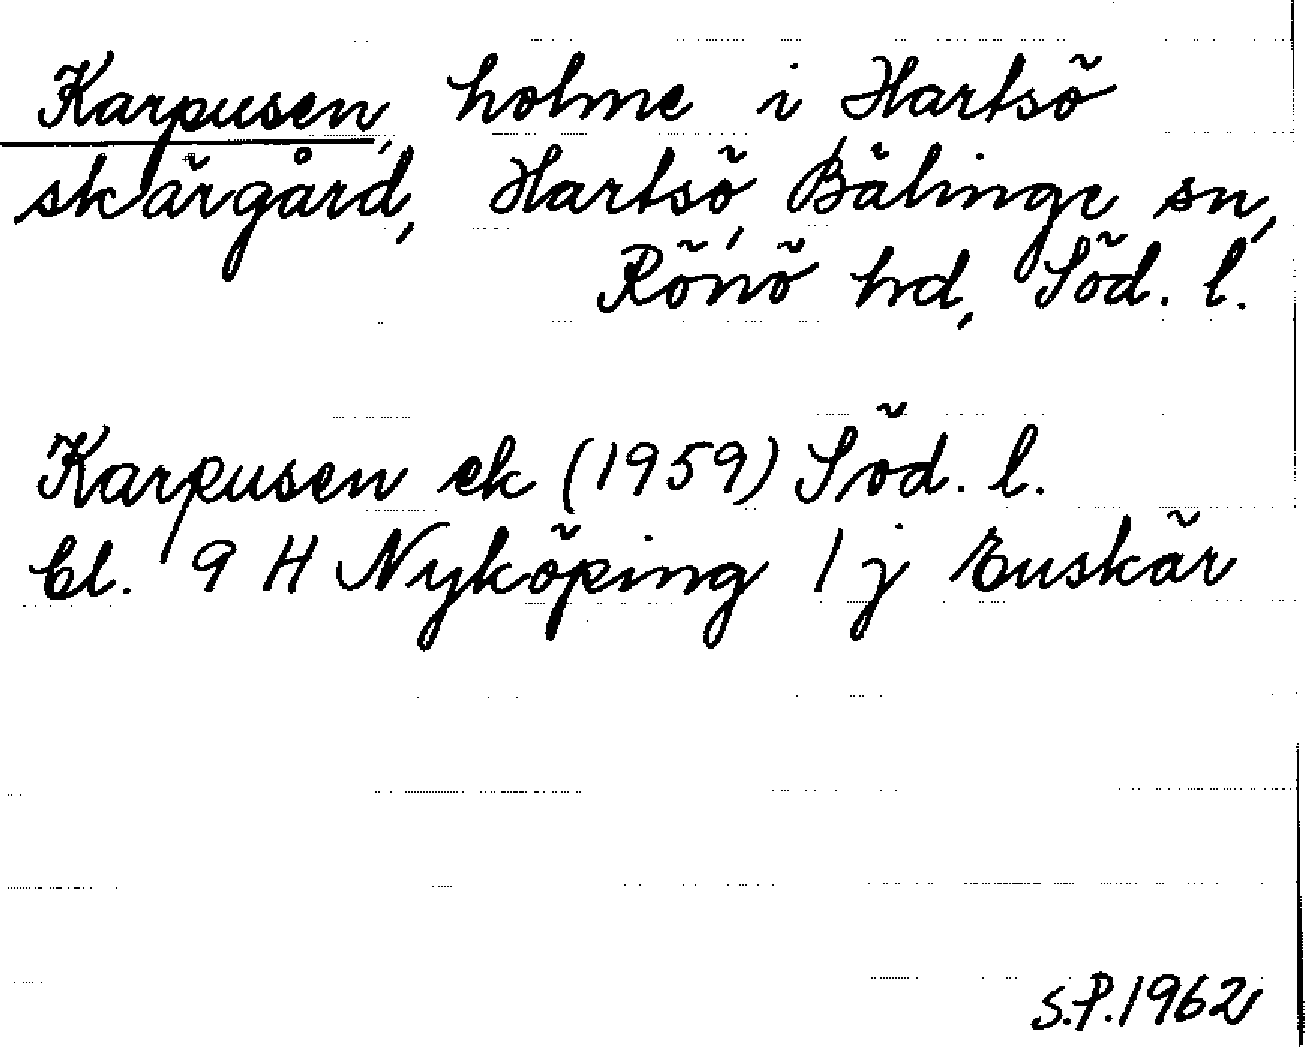 Karpusen, holme i Hartsö
skärgård, Hartsö, Bälinge sn,
Rönö hd, Söd. l.
Karpusen ek (1959) Söd. l.
bl. 9 H Nyköping 1 j Enskär
S.P. 1962